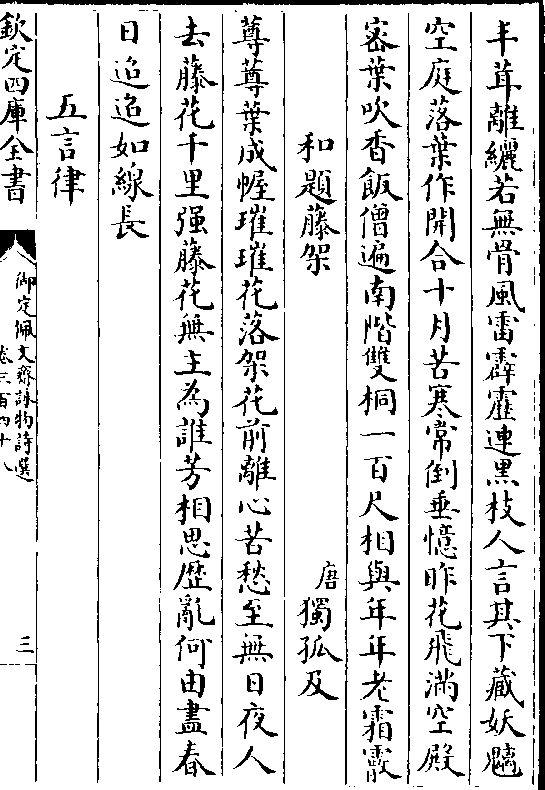 丰茸離纚若無骨風雷霹靂連黑枝人言其下藏妖魑
空庭落葉作開合十月苦寒常倒垂憶昨花飛滿空殿
密葉吹香飯僧遍南階雙桐一百尺相與年年老霜霰
和題藤架　唐獨孤及
蓴蓴葉成幄璀璀花落架花前離心苦愁至無日夜人
去藤花千里强藤花無主為誰芳相思歴亂何由盡春
日迢迢如線長
五言律
欽定四庫全書
御定佩文齋詠物詩選
卷三百四十八
三